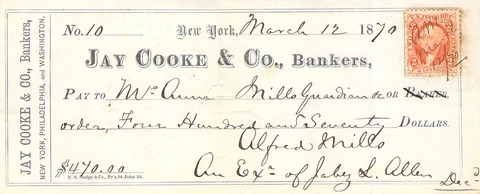 JAY COOKE & CO., Bankers,
NEW YORK, PHILADELPHIA, and WASHINGTON.
No. 10 New York, March 12 1870
JAY COOKE & CO., Bankers,
PAY TO Mrs Anna Mills Guardian &c OR BEARER
order, Four Hundred and Seventy DOLLARS.
Alfred Mills
$470.00 An Exr of Jabez L. Allen Decd
E. S. Dodge & Co., Pr's, 84 John St.